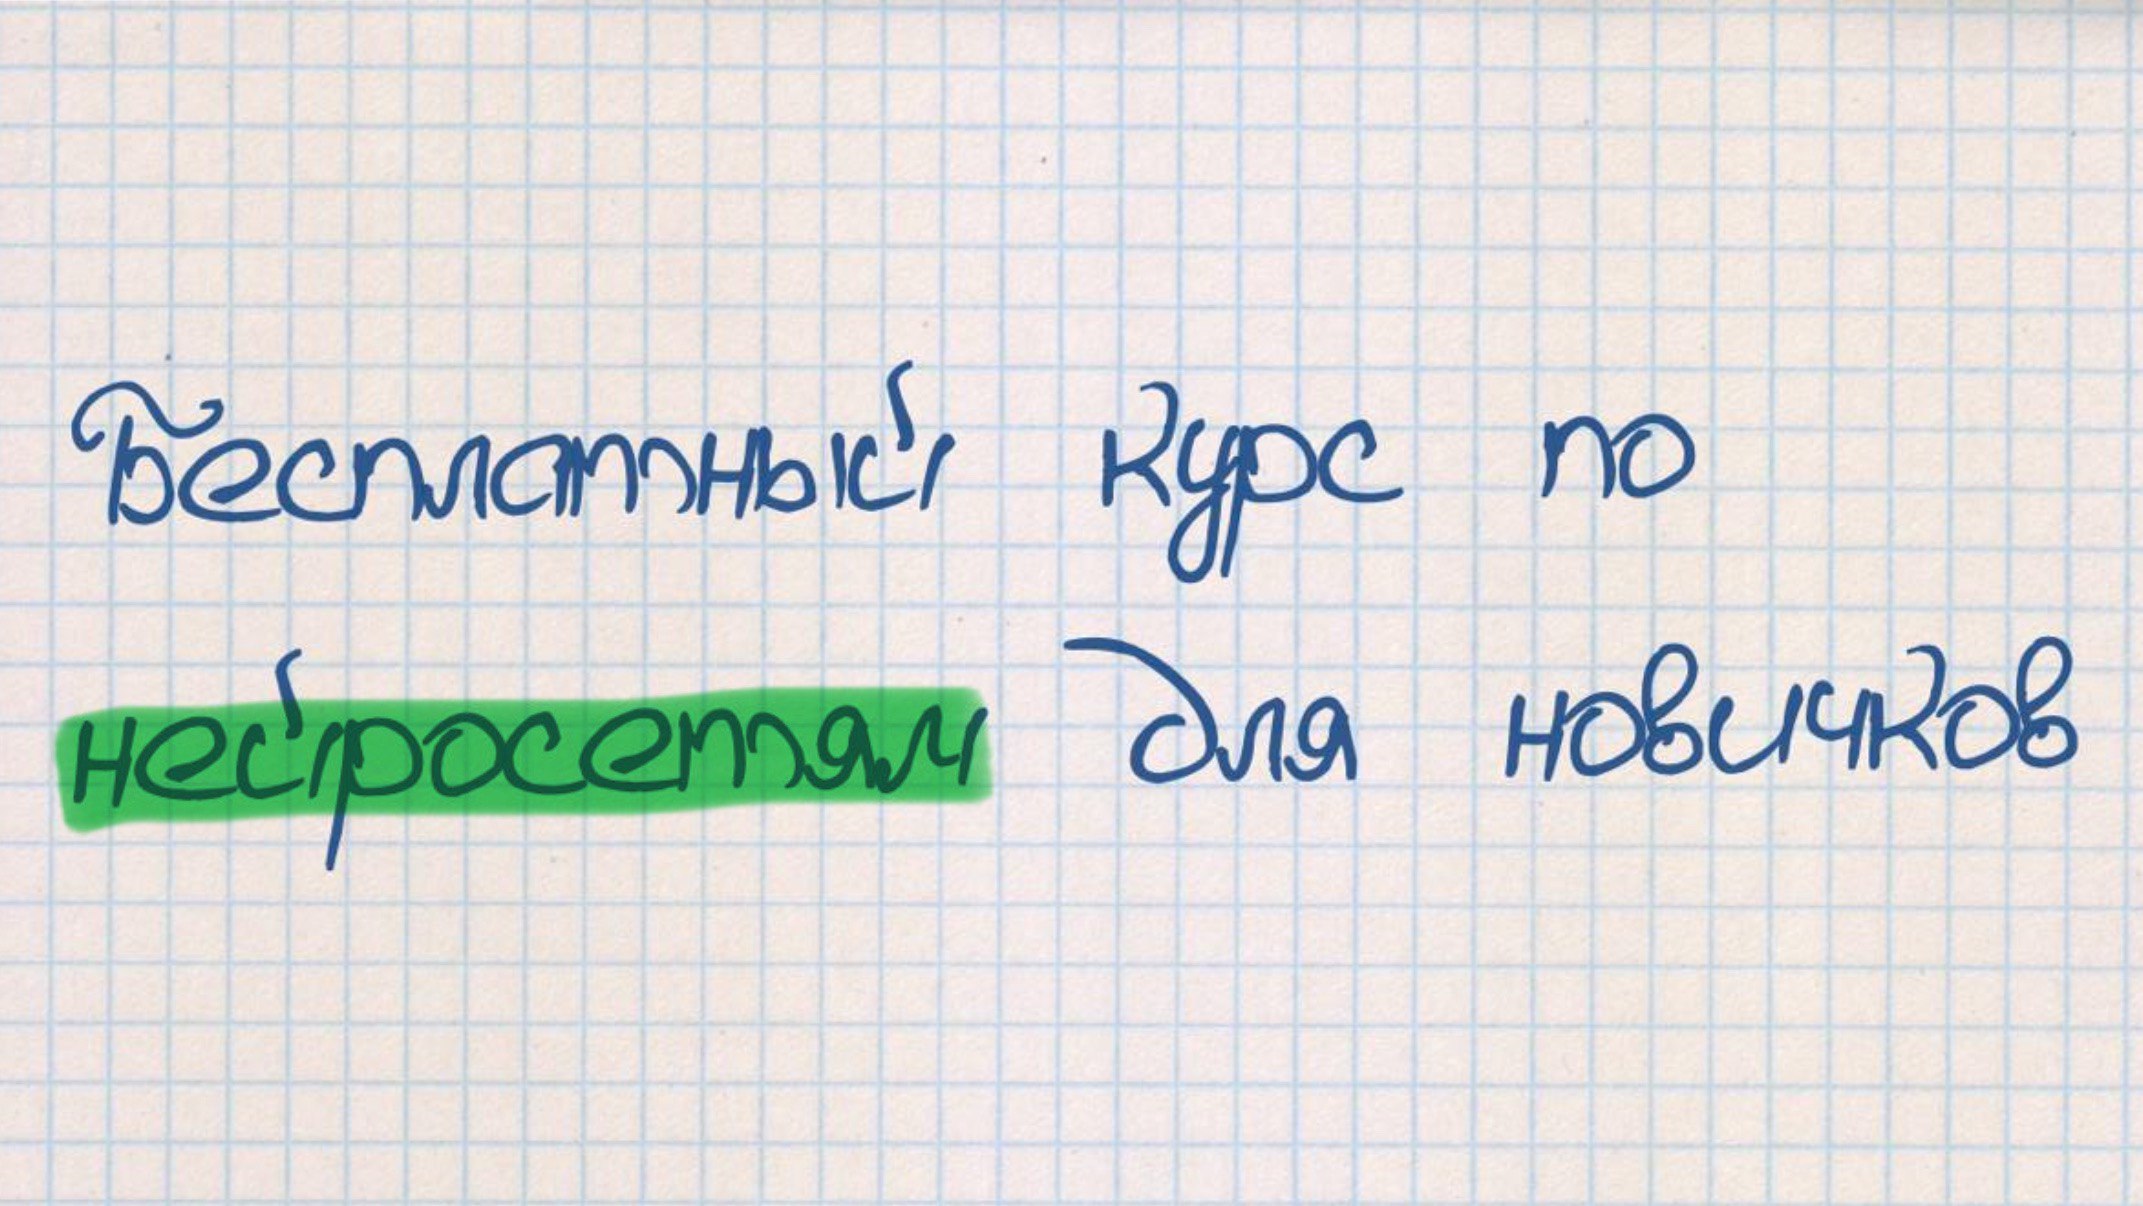 Бесплатный курс по
нейросетям для новичков